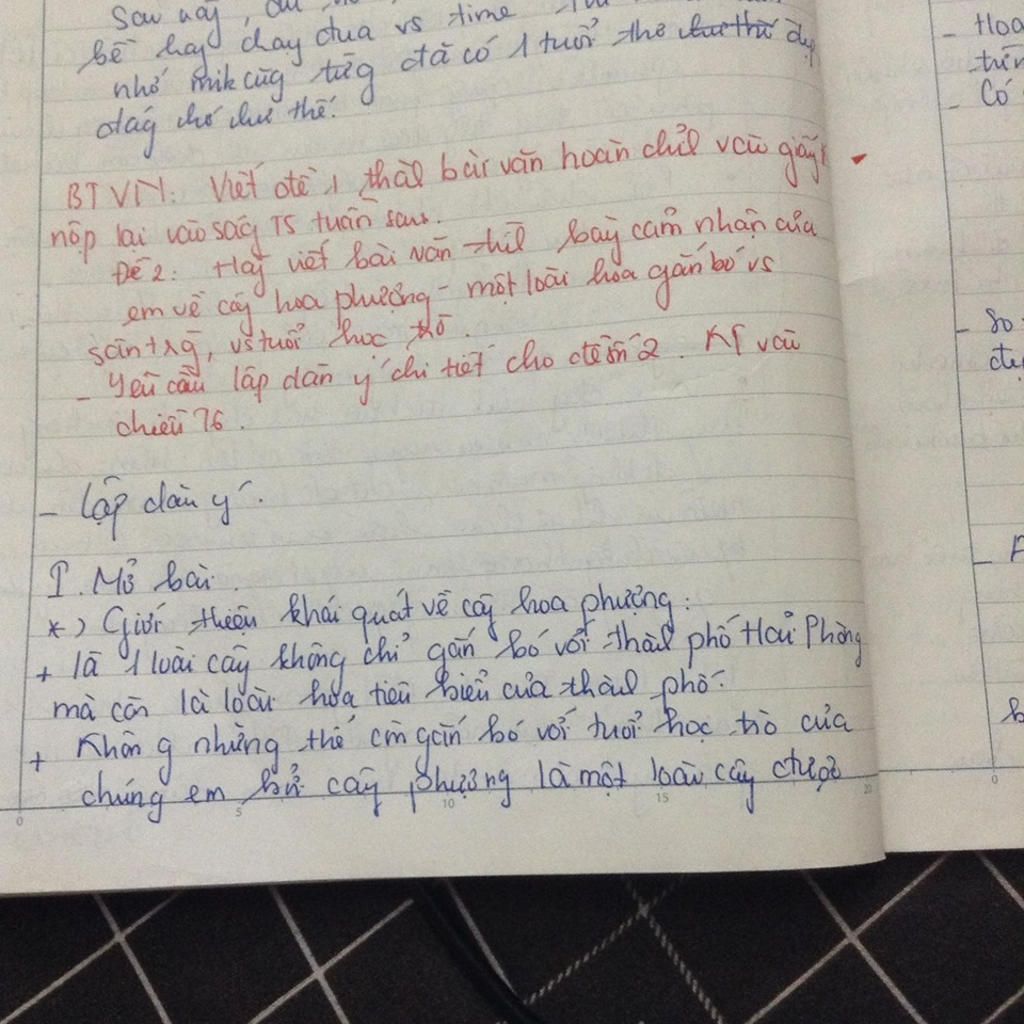 Sau này,
bề hay chạy đua vs time
nhớ mik cũg từg đã có 1 tuổi thơ
đág chớ như thế.
BTVN: Viết đề 1 thàl bài văn hoàn chỉl vào giấy
nộp lại vào ság T5 tuần sau.
Đề 2: Hãy viết bài văn thil bày cảm nhận của
em về cây hoa phượng - một loài hoa gắn bó vs
sân trg, vs tuổi học trò.
- Yêu cầu lập dàn ý chi tiết cho đề số 2. KT vào
chiều T6.
- Lập dàn ý.
I. Mở bài
*) Giới thiệu khái quát về cây hoa phượng:
+ là 1 loài cây không chỉ gắn bó với thàl phố Hải Phòng
mà còn là loài hoa tiêu biểu của thàl phố.
+ Không những thế còn gắn bó với tuổi học trò của
chúng em bởi cây phượng là một loài cây được
0 5 10 15 20
- Hoa
- Có
- so
0